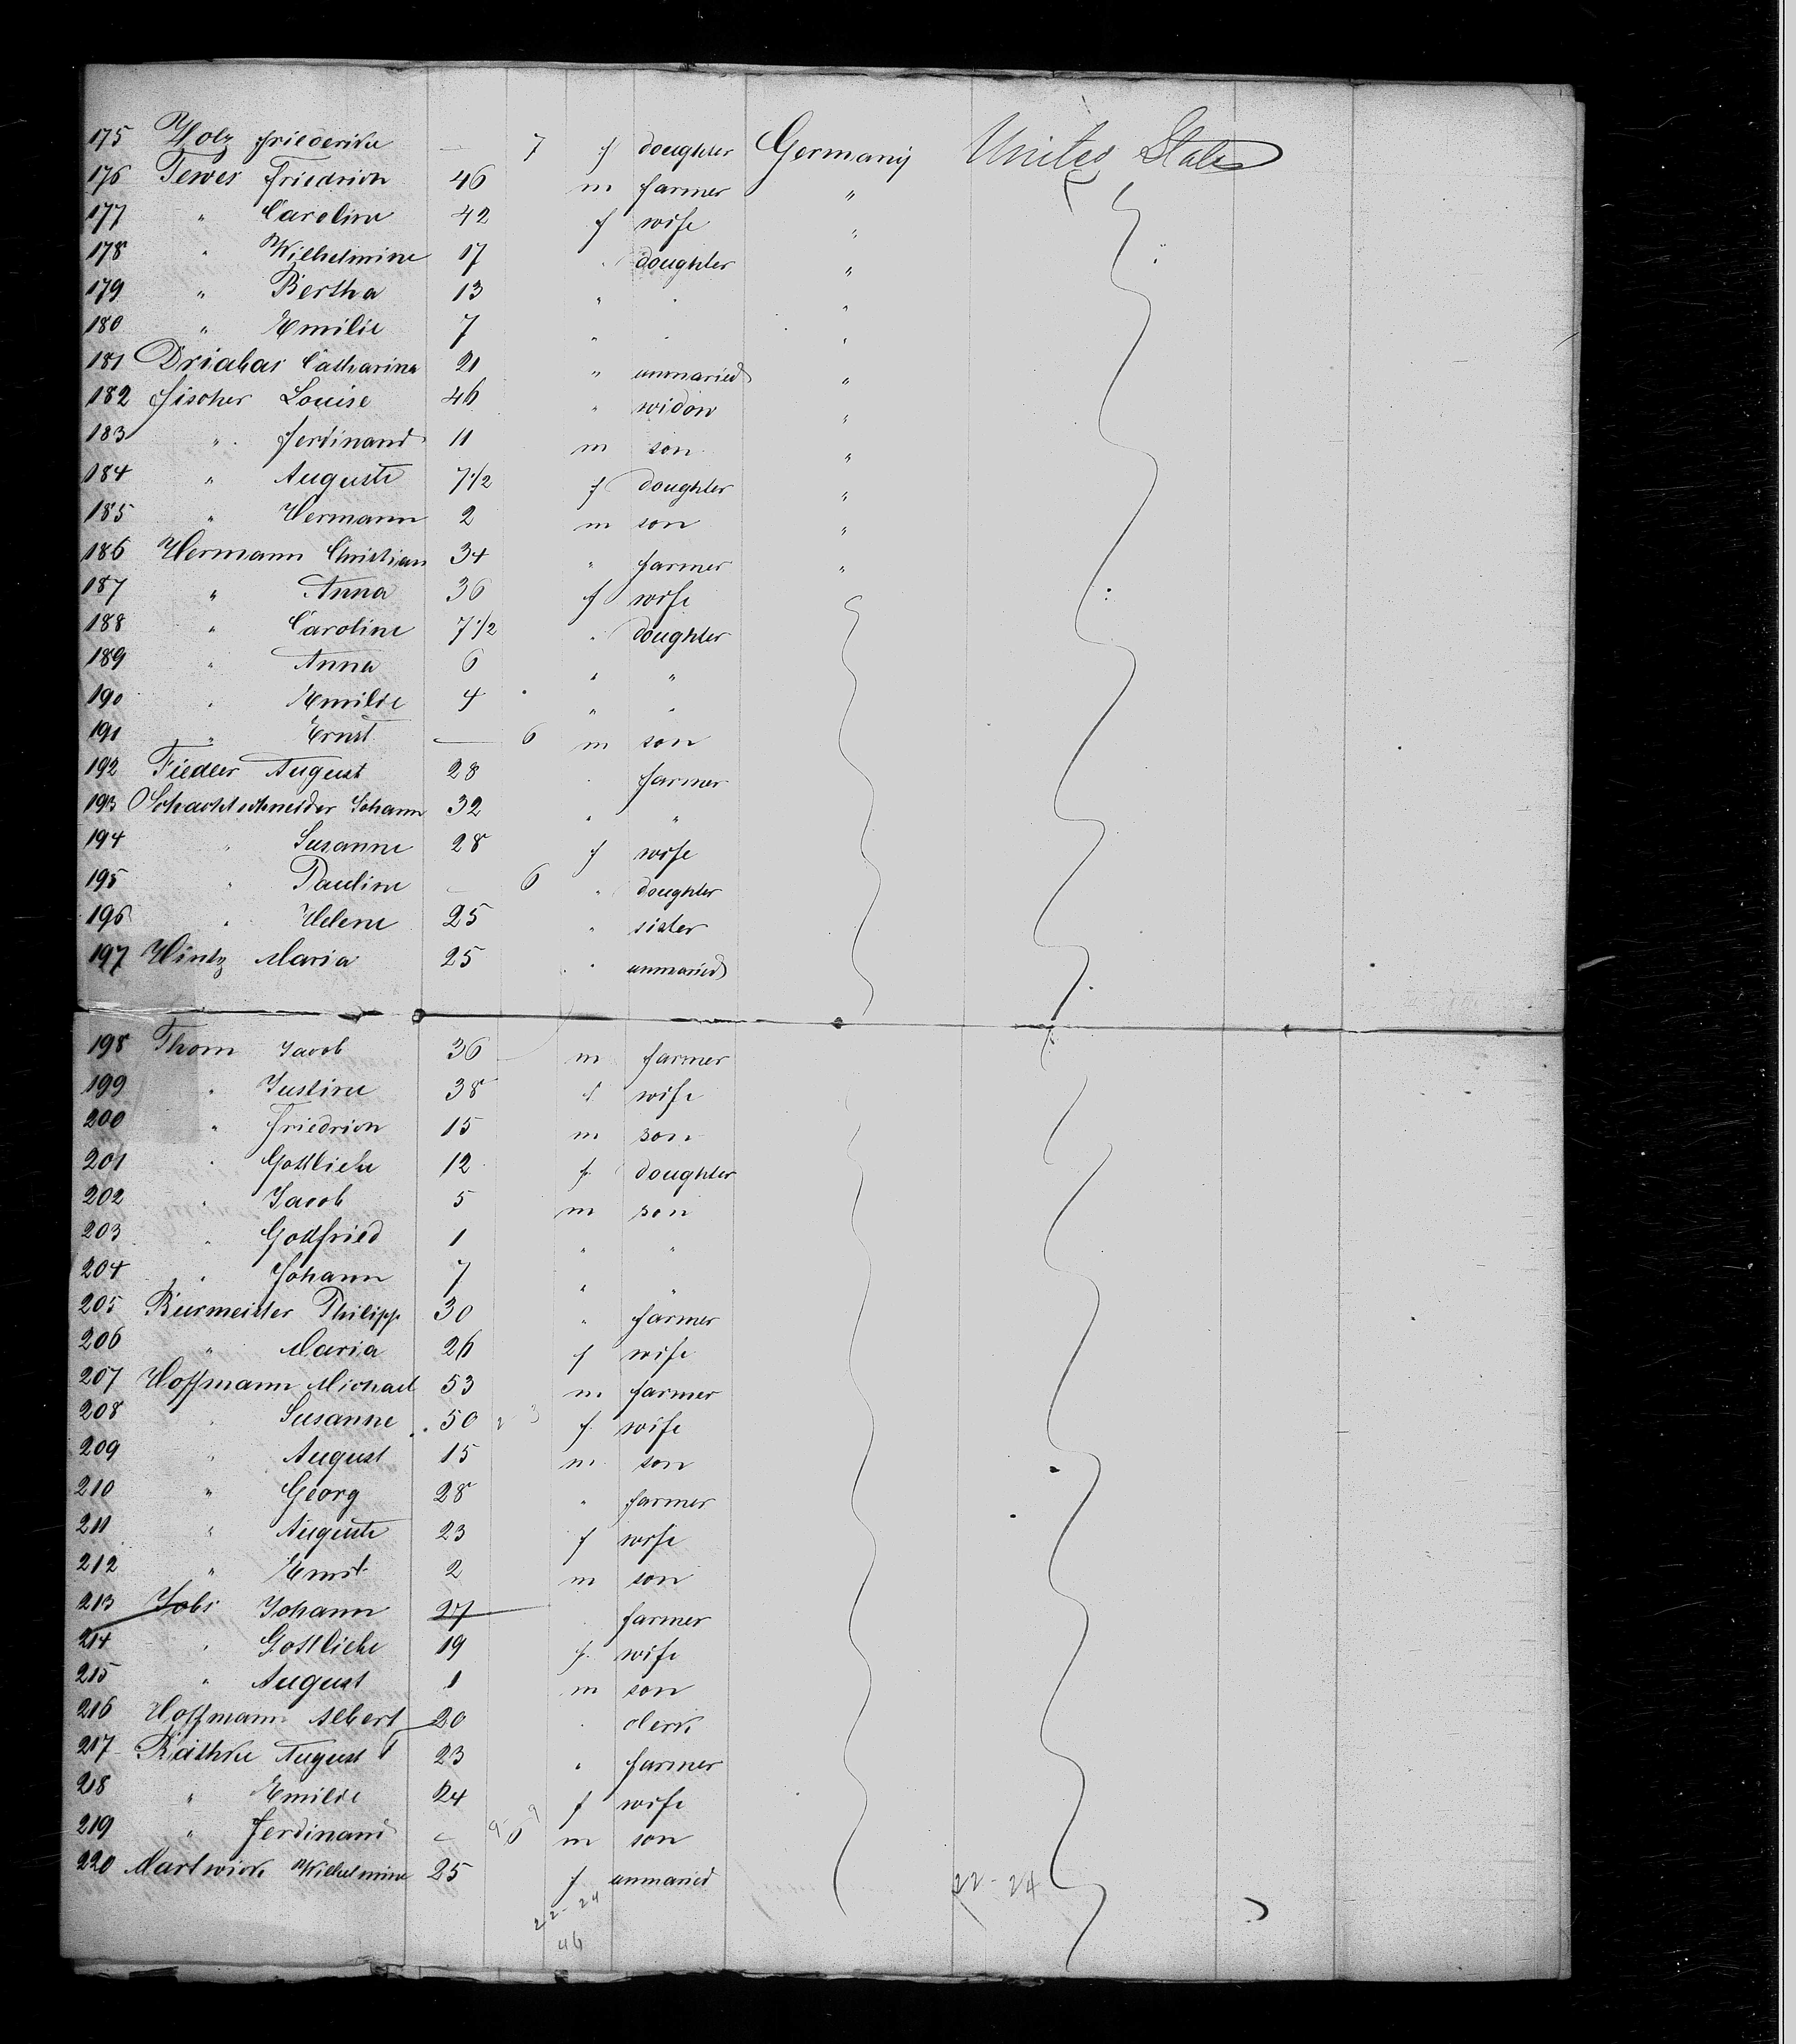 175 Holz Friederike — 7 f doughter Germany United States
176 Tewes Friedrich 46 m farmer "
177 " Caroline 42 f wife "
178 " Wilhelmine 17 " doughter "
179 " Bertha 13 " " "
180 " Emilie 7 " " "
181 Catharina 21 " unmaried "
182 Fischer Louise 46 " widow "
183 " Ferdinand 11 m son "
184 " Auguste 7 1/2 f doughter "
185 " Hermann 2 m son "
186 Hermann Christian 34 " farmer "
187 " Anna 36 f wife
188 " Caroline 7 1/2 " doughter
189 " Anna 6 " "
190 " Emilie 4 " "
191 " Ernst — 6 m son
192 Fiedler August 28 " farmer
193 Schachtschneider Johann 32 " "
194 " Susanne 28 f wife
195 " Pauline — 6 " doughter
196 " Helene 25 " sister
197 Hintz Maria 25 " unmaried
198 Thom Jacob 36 m farmer
199 " Justine 38 f wife
200 " Friedrich 15 m son
201 " Gottliebe 12 f doughter
202 " Jacob 5 m son
203 " Gottfried 1 " "
204 " Johann 7 " "
205 Burmeister Philipp 30 " farmer
206 " Maria 26 f wife
207 Hoffmann Michael 53 m farmer
208 " Susanne 50 f wife
209 " August 15 m son
210 " Georg 28 " farmer
211 " Auguste 23 f wife
212 " Ernst 2 m son
213 Jobs Johann 27 " farmer
214 " Gottliebe 19 f wife
215 " August 1 m son
216 Hoffmann Albert 20 " clerk
217 Räthke August 23 " farmer
218 " Emilie 24 f wife
219 " Ferdinand — m son
220 Martwich Wilhelmine 25 f unmaried
22-24 22-24
46